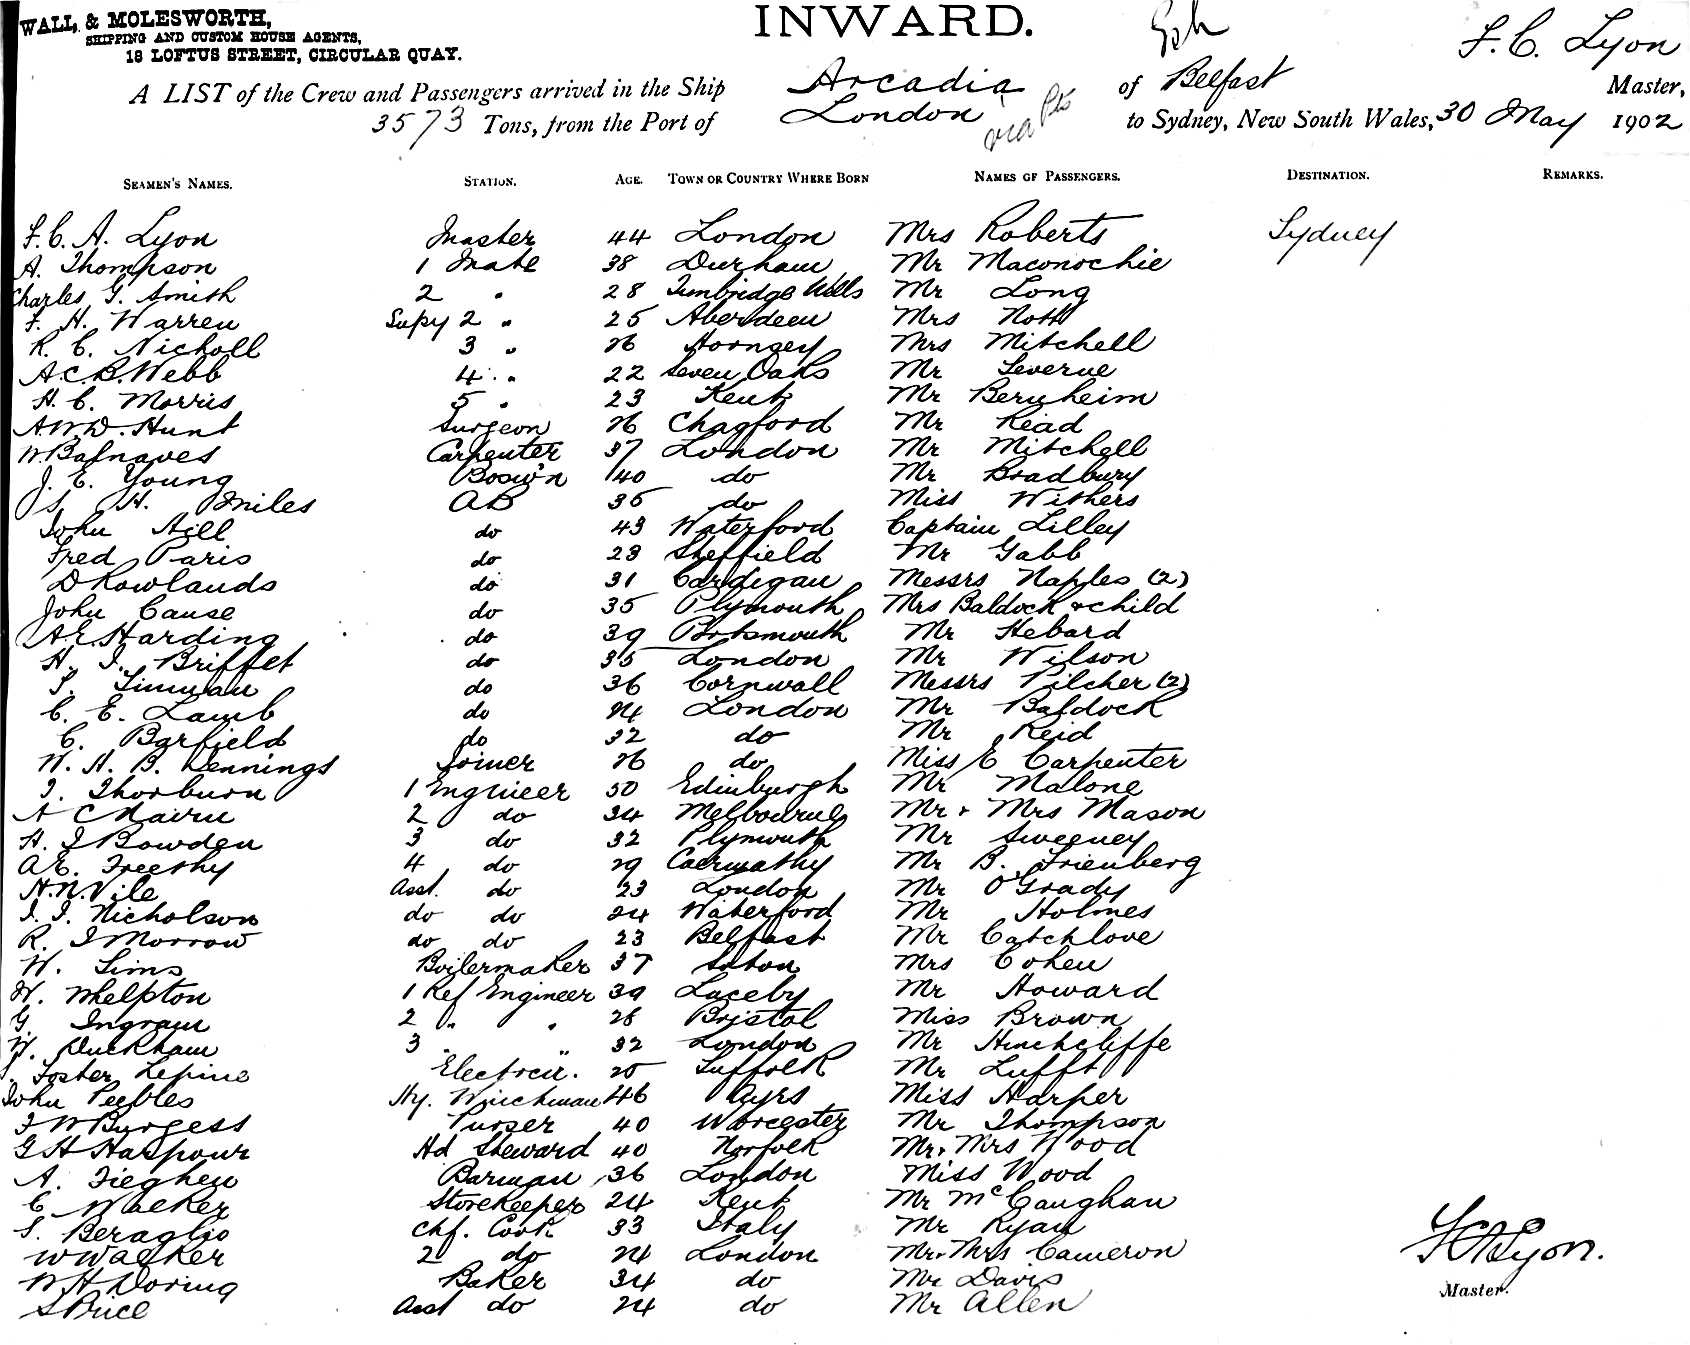 WALL, & MOLESWORTH,
SHIPPING AND CUSTOM HOUSE AGENTS,
18 LOFTUS STREET, CIRCULAR QUAY.
INWARD.
F. C. Lyon
A LIST of the Crew and Passengers arrived in the Ship Arcadia of Belfast Master,
3573 Tons, from the Port of London via Pts to Sydney, New South Wales, 30 May 1902
SEAMEN'S NAMES. STATION. AGE. TOWN OR COUNTRY WHERE BORN NAMES OF PASSENGERS. DESTINATION. REMARKS.
F. C. A. Lyon Master 44 London Mrs Roberts Sydney
A. Thompson 1 Mate 38 Durham Mr Maconochie
Charles G. Smith 2 " 28 Tunbridge Wells Mr Long
F. H. Warren Supy 2 " 25 Aberdeen Mrs Nott
R. C. Nicholl 3 " 26 Hornsey Mrs Mitchell
A. C. B. Webb 4 " 22 Seven Oaks Mr Leverne
H. C. Morris 5 " 23 Kent Mr Bernheim
A. W. D. Hunt Surgeon 26 Chagford Mr Read
W. Balnaves Carpenter 37 London Mr Mitchell
J. E. Young Bosw'n 40 do Mr Bradbury
S. H. Miles AB 35 do Miss Withers
John Hill do 43 Waterford Captain Lilley
Fred Paris do 23 Sheffield Mr Gabb
D Rowlands do 31 Cardigan Messrs Naples (2)
John Cause do 35 Plymouth Mrs Baldock & child
A. E. Harding do 39 Portsmouth Mr Hebard
H. J. Briffet do 35 London Mr Wilson
do 36 Cornwall Messrs Pilcher (2)
C. E. Lamb do 24 London Mr Baldock
C. Barfield do 32 do Mr Reid
W. H. B. Hennings Joiner 26 do Miss E Carpenter
J. Thorburn 1 Engineer 50 Edinburgh Mr Malone
A C Mairn 2 do 34 Melbourne Mr & Mrs Mason
H. J Bowden 3 do 32 Plymouth Mr Sweeney
A. E. Freethy 4 do 29 Mr B. Frienberg
H. N. Vile Asst. do 23 London Mr O'Grady
J. J. Nicholson do do 24 Waterford Mr Holmes
R. J Morrow do do 23 Belfast Mr Catchlove
W. Sims Boilermaker 37 Mrs Cohen
W. Whelpton 1 Ref Engineer 39 Laceby Mr Howard
G. Ingram 2 " " 28 Bristol Miss Brown
W. Duckham 3 " 32 London Mr Hinchcliffe
Foster Lepine Electrcn. 25 Suffolk Mr Lufft
John Peebles Hy. Winchman 46 Ayrs Miss Harper
J W Burgess Purser 40 Worcester Mr Thompson
G H Harpour Hd Steward 40 Norfolk Mr. Mrs Wood
A. Tieghen Barman 36 London Miss Wood
C Walker Storekeeper 24 Kent Mr McCaughan
S. Beraglio Chf. Cook 33 Italy Mr Ryan
W Walker 2 do 24 London Mr. Mrs Cameron
W H Doring Baker 34 do Mr Davis
S Price Asst do 24 do Mr Allen
F C A Lyon.
Master.